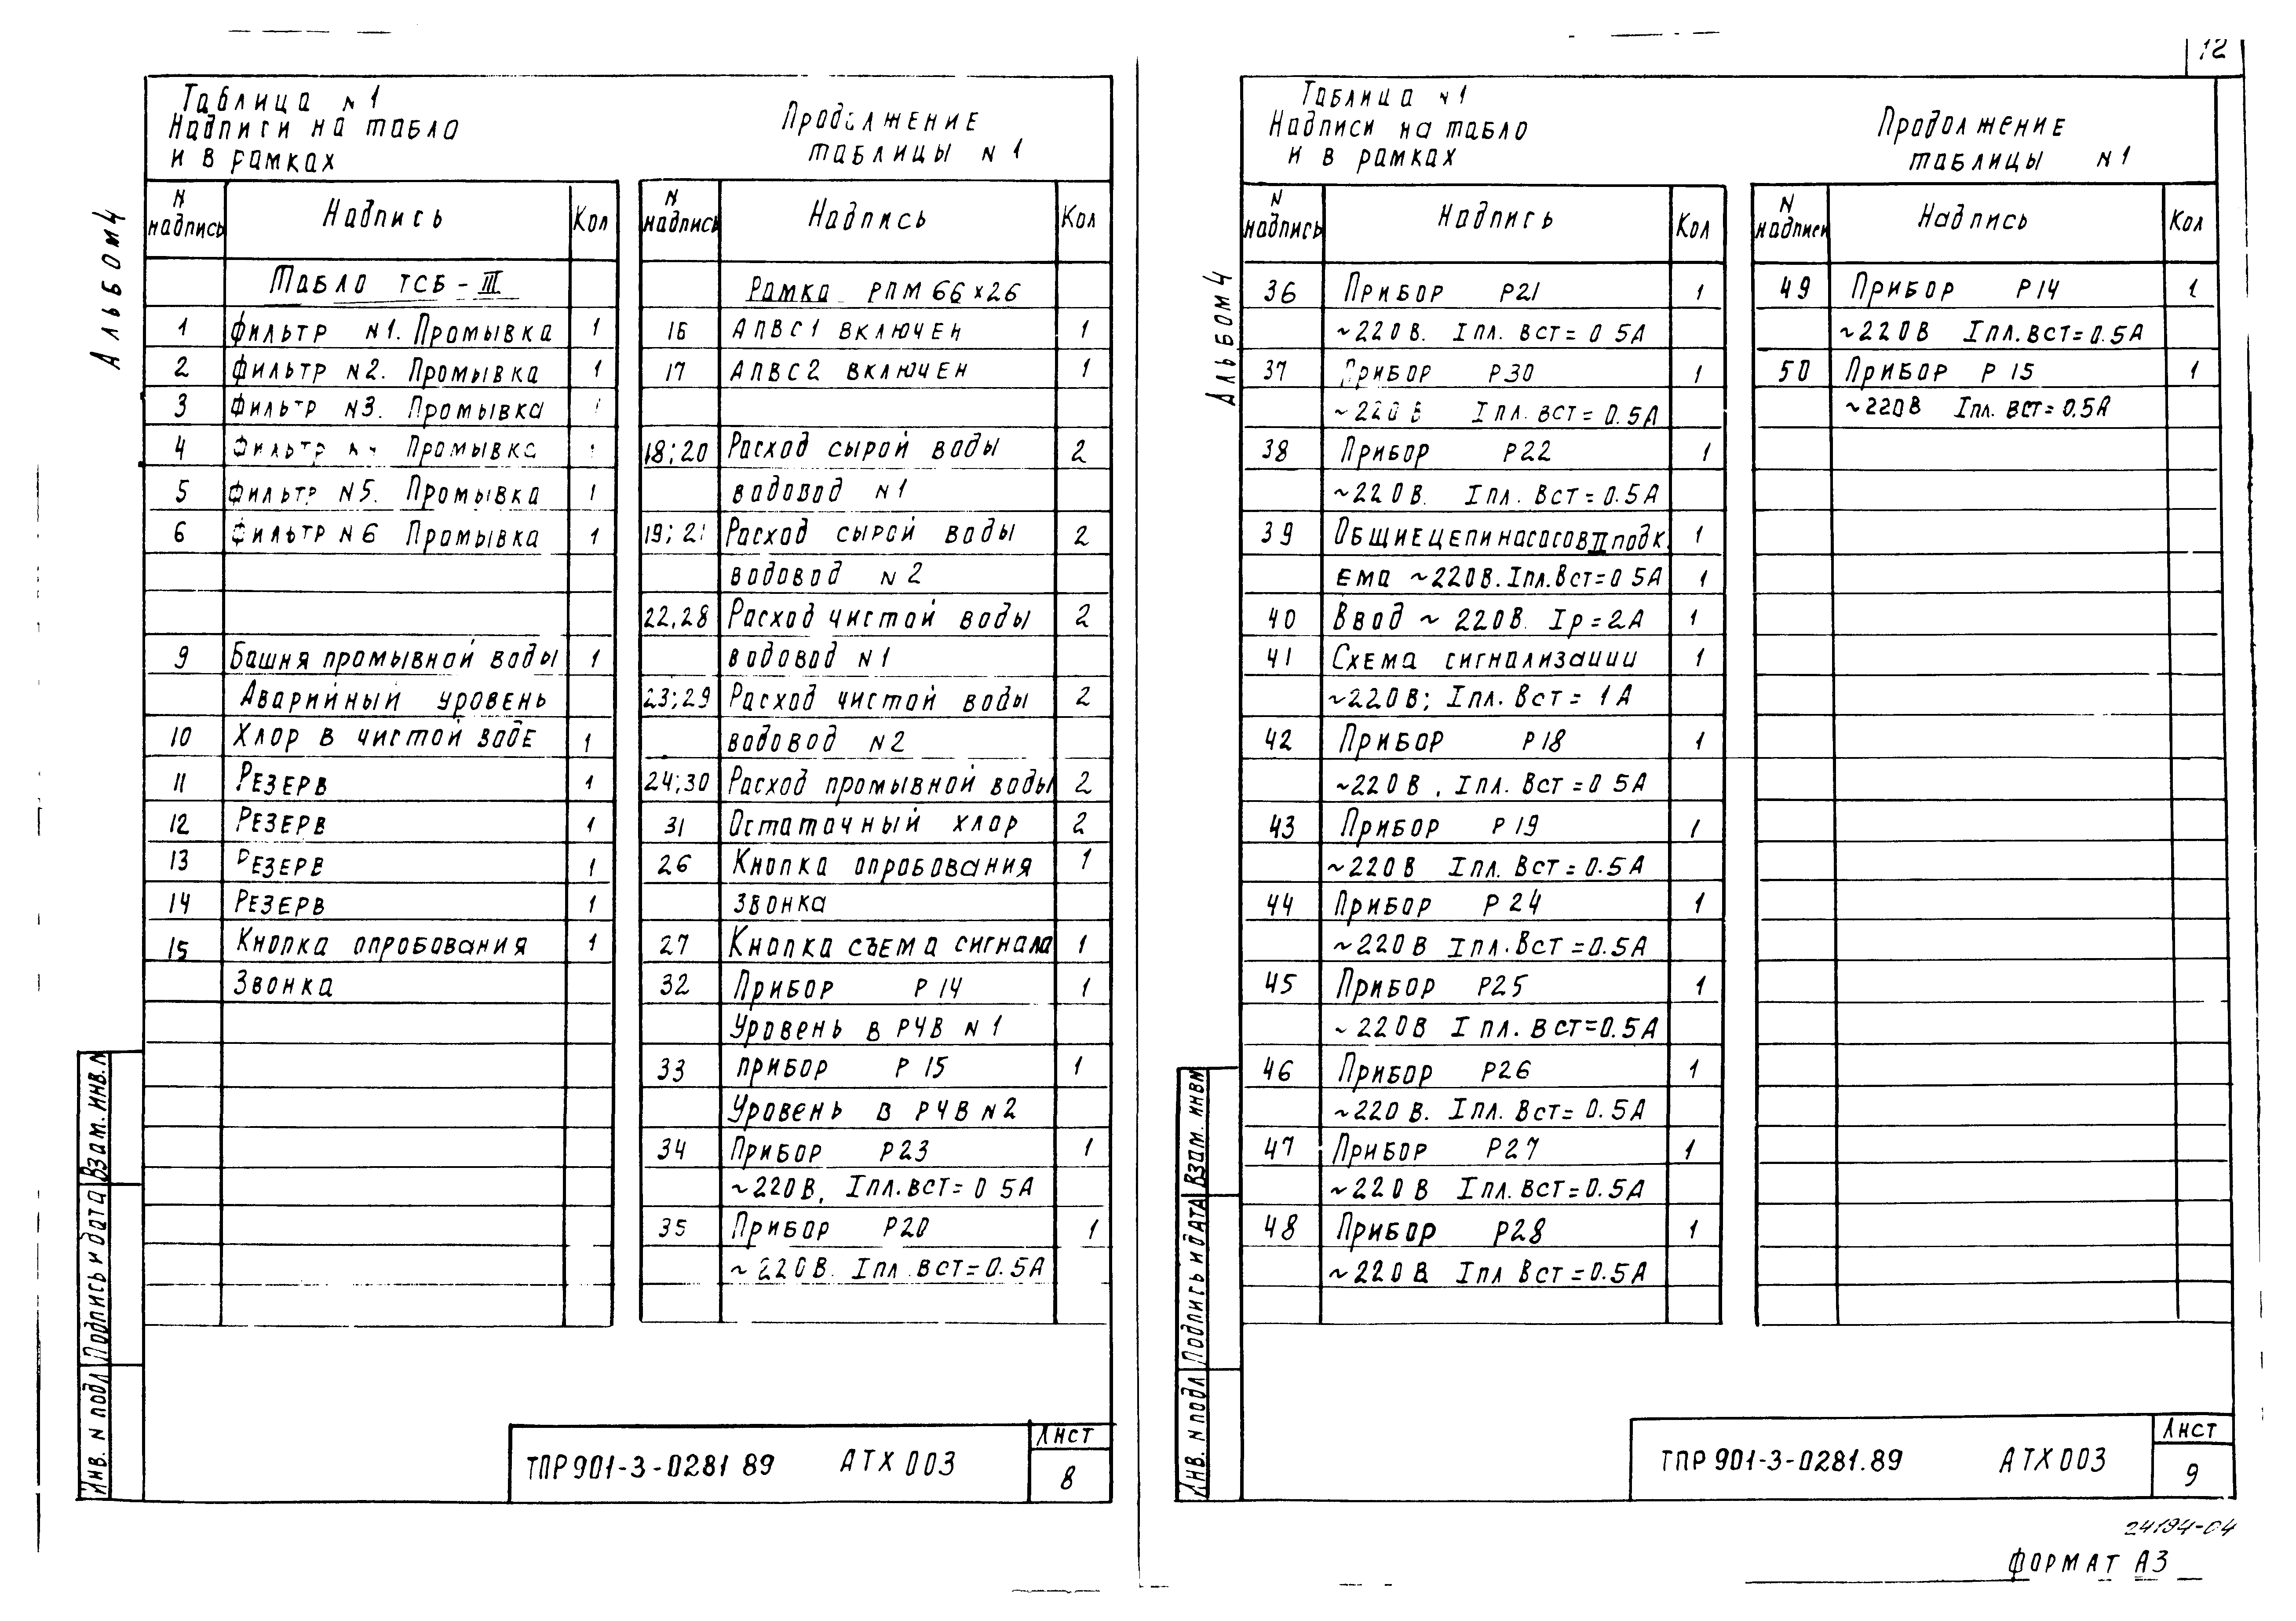 12
Альбом 4
Таблица N 1
Надписи на табло
и в рамках
N надпись Надпись Кол
Табло ТСБ - III
1 Фильтр N1. Промывка 1
2 Фильтр N2. Промывка 1
3 Фильтр N3. Промывка
4 Фильтр Промывка
5 Фильтр N5. Промывка 1
6 Фильтр N6 Промывка 1
9 Башня промывной воды 1
Аварийный уровень
10 Хлор в чистой воде 1
11 Резерв 1
12 Резерв 1
13 Резерв 1
14 Резерв 1
15 Кнопка опробования 1
Звонка
Продолжение
таблицы N 1
N надпись Надпись Кол
Рамка РПМ 66×26
16 АПВС1 включен 1
17 АПВС2 включен 1
18;20 Расход сырой воды 2
водовод N1
19;21 Расход сырой воды 2
водовод N2
22,28 Расход чистой воды 2
водовод N1
23;29 Расход чистой воды 2
водовод N2
24;30 Расход промывной воды 2
31 Остаточный хлор 2
26 Кнопка опробования 1
звонка
27 Кнопка съема сигнала 1
32 Прибор Р 14 1
Уровень в РЧВ N1
33 прибор Р 15 1
Уровень в РЧВ N2
34 Прибор Р23 1
~220В, Iпл.вст= 0 5А
35 Прибор Р20 1
~220В. Iпл.вст=0.5А
Инв. N подл Подпись и дата Взам. инв. N
ТПР 901-3-0281 89 АТХ 003
Лист
8
Альбом 4
Таблица N 1
Надписи на табло
и в рамках
N надпись Надпись Кол
36 Прибор Р21 1
~220В. Iпл. вст= 0 5А
37 Прибор Р30 1
~220В Iпл. вст= 0.5А
38 Прибор Р22 1
~220В. Iпл. Вст=0.5А
39 Общие цепи насосов II подк. 1
ема ~220В. Iпл.Вст=0 5А 1
40 Ввод ~ 220В. Iр=2А 1
41 Схема сигнализации 1
~220В; Iпл. Вст= 1А
42 Прибор Р18 1
~220В, Iпл. Вст=0 5А
43 Прибор Р19 1
~220В Iпл. Вст=0.5А
44 Прибор Р24 1
~220В Iпл.Вст=0.5А
45 Прибор Р25 1
~220В Iпл. Вст=0.5А
46 Прибор Р26 1
~220В. Iпл. Вст= 0.5А
47 Прибор Р27 1
~220В Iпл.Вст=0.5А
48 Прибор Р28 1
~220В Iпл Вст=0.5А
Продолжение
таблицы N 1
N надписи Надпись Кол
49 Прибор Р14 1
~220В Iпл.Вст=0.5А
50 Прибор Р 15 1
~220В Iпл. Вст=0.5А
Инв. N подл Подпись и дата Взам. инв N
ТПР 901-3-0281.89 АТХ 003
Лист
9
24194-04
Формат А3